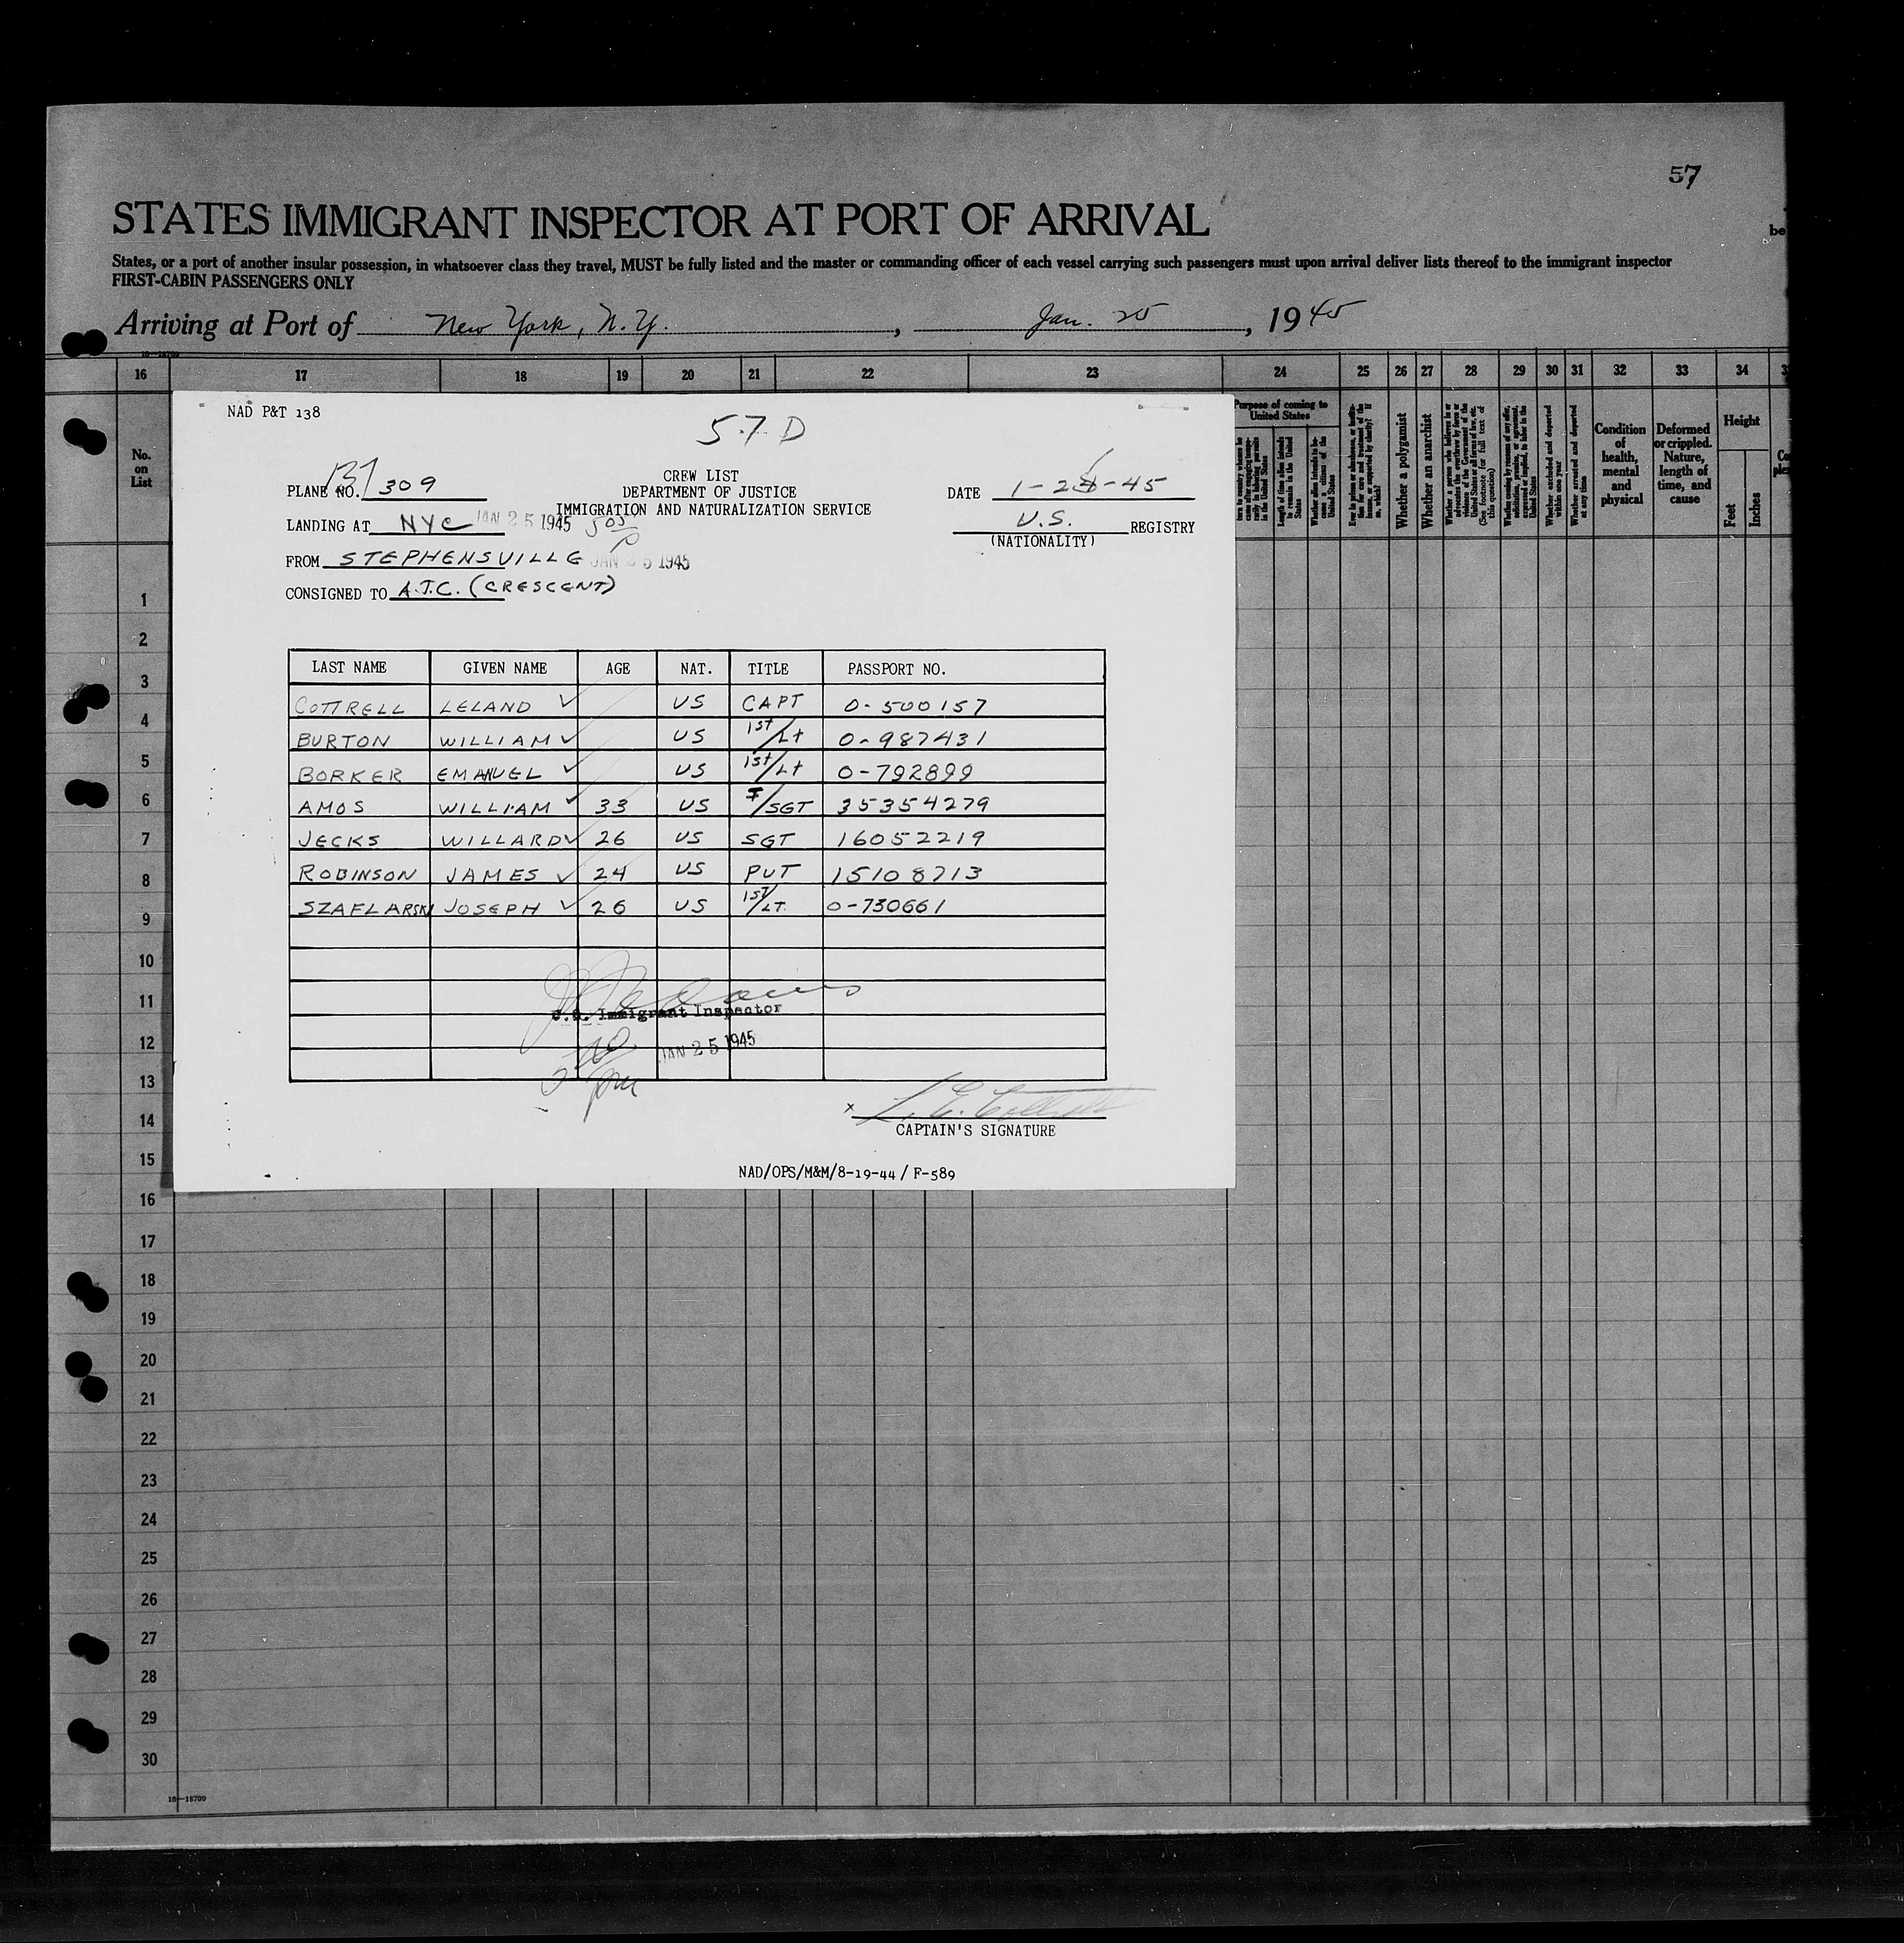 57
STATES IMMIGRANT INSPECTOR AT PORT OF ARRIVAL
be
States, or a port of another insular possession, in whatsoever class they travel, MUST be fully listed and the master or commanding officer of each vessel carrying such passengers must upon arrival deliver lists thereof to the immigrant inspector
FIRST-CABIN PASSENGERS ONLY
Arriving at Port of New York, N.Y. , Jan. 25 , 1945
16 17 18 19 20 21 22 23 24 25 26 27 28 29 30 31 32 33 34
No. on List
Purpose of coming to United States
Whether a polygamist
Whether an anarchist
Condition of health, mental and physical
Deformed or crippled. Nature, length of time, and cause
Height
Feet
Inches
NAD P&T 138
57 D
CREW LIST
DEPARTMENT OF JUSTICE
IMMIGRATION AND NATURALIZATION SERVICE
PLANE NO. 309
DATE 1-25-45
LANDING AT NYC JAN 25 1945
U.S. REGISTRY
(NATIONALITY)
FROM STEPHENSVILLE JAN 25 1945
CONSIGNED TO A.T.C. (CRESCENT)
LAST NAME GIVEN NAME AGE NAT. TITLE PASSPORT NO.
COTTRELL LELAND ✓ US CAPT 0-500157
BURTON WILLIAM ✓ US 1ST/Lt 0-987431
BORKER EMANUEL ✓ US 1ST/Lt 0-792899
AMOS WILLIAM ✓ 33 US T/SGT 35354279
JECKS WILLARD ✓ 26 US SGT 16052219
ROBINSON JAMES ✓ 24 US PVT 15108713
SZAFLARSKI JOSEPH ✓ 26 US 1ST/LT. 0-730661
U.S. Immigrant Inspector
JAN 25 1945
x L. E. Cottrell
CAPTAIN'S SIGNATURE
NAD/OPS/M&M/8-19-44 / F-589
1
2
3
4
5
6
7
8
9
10
11
12
13
14
15
16
17
18
19
20
21
22
23
24
25
26
27
28
29
30
16—18700